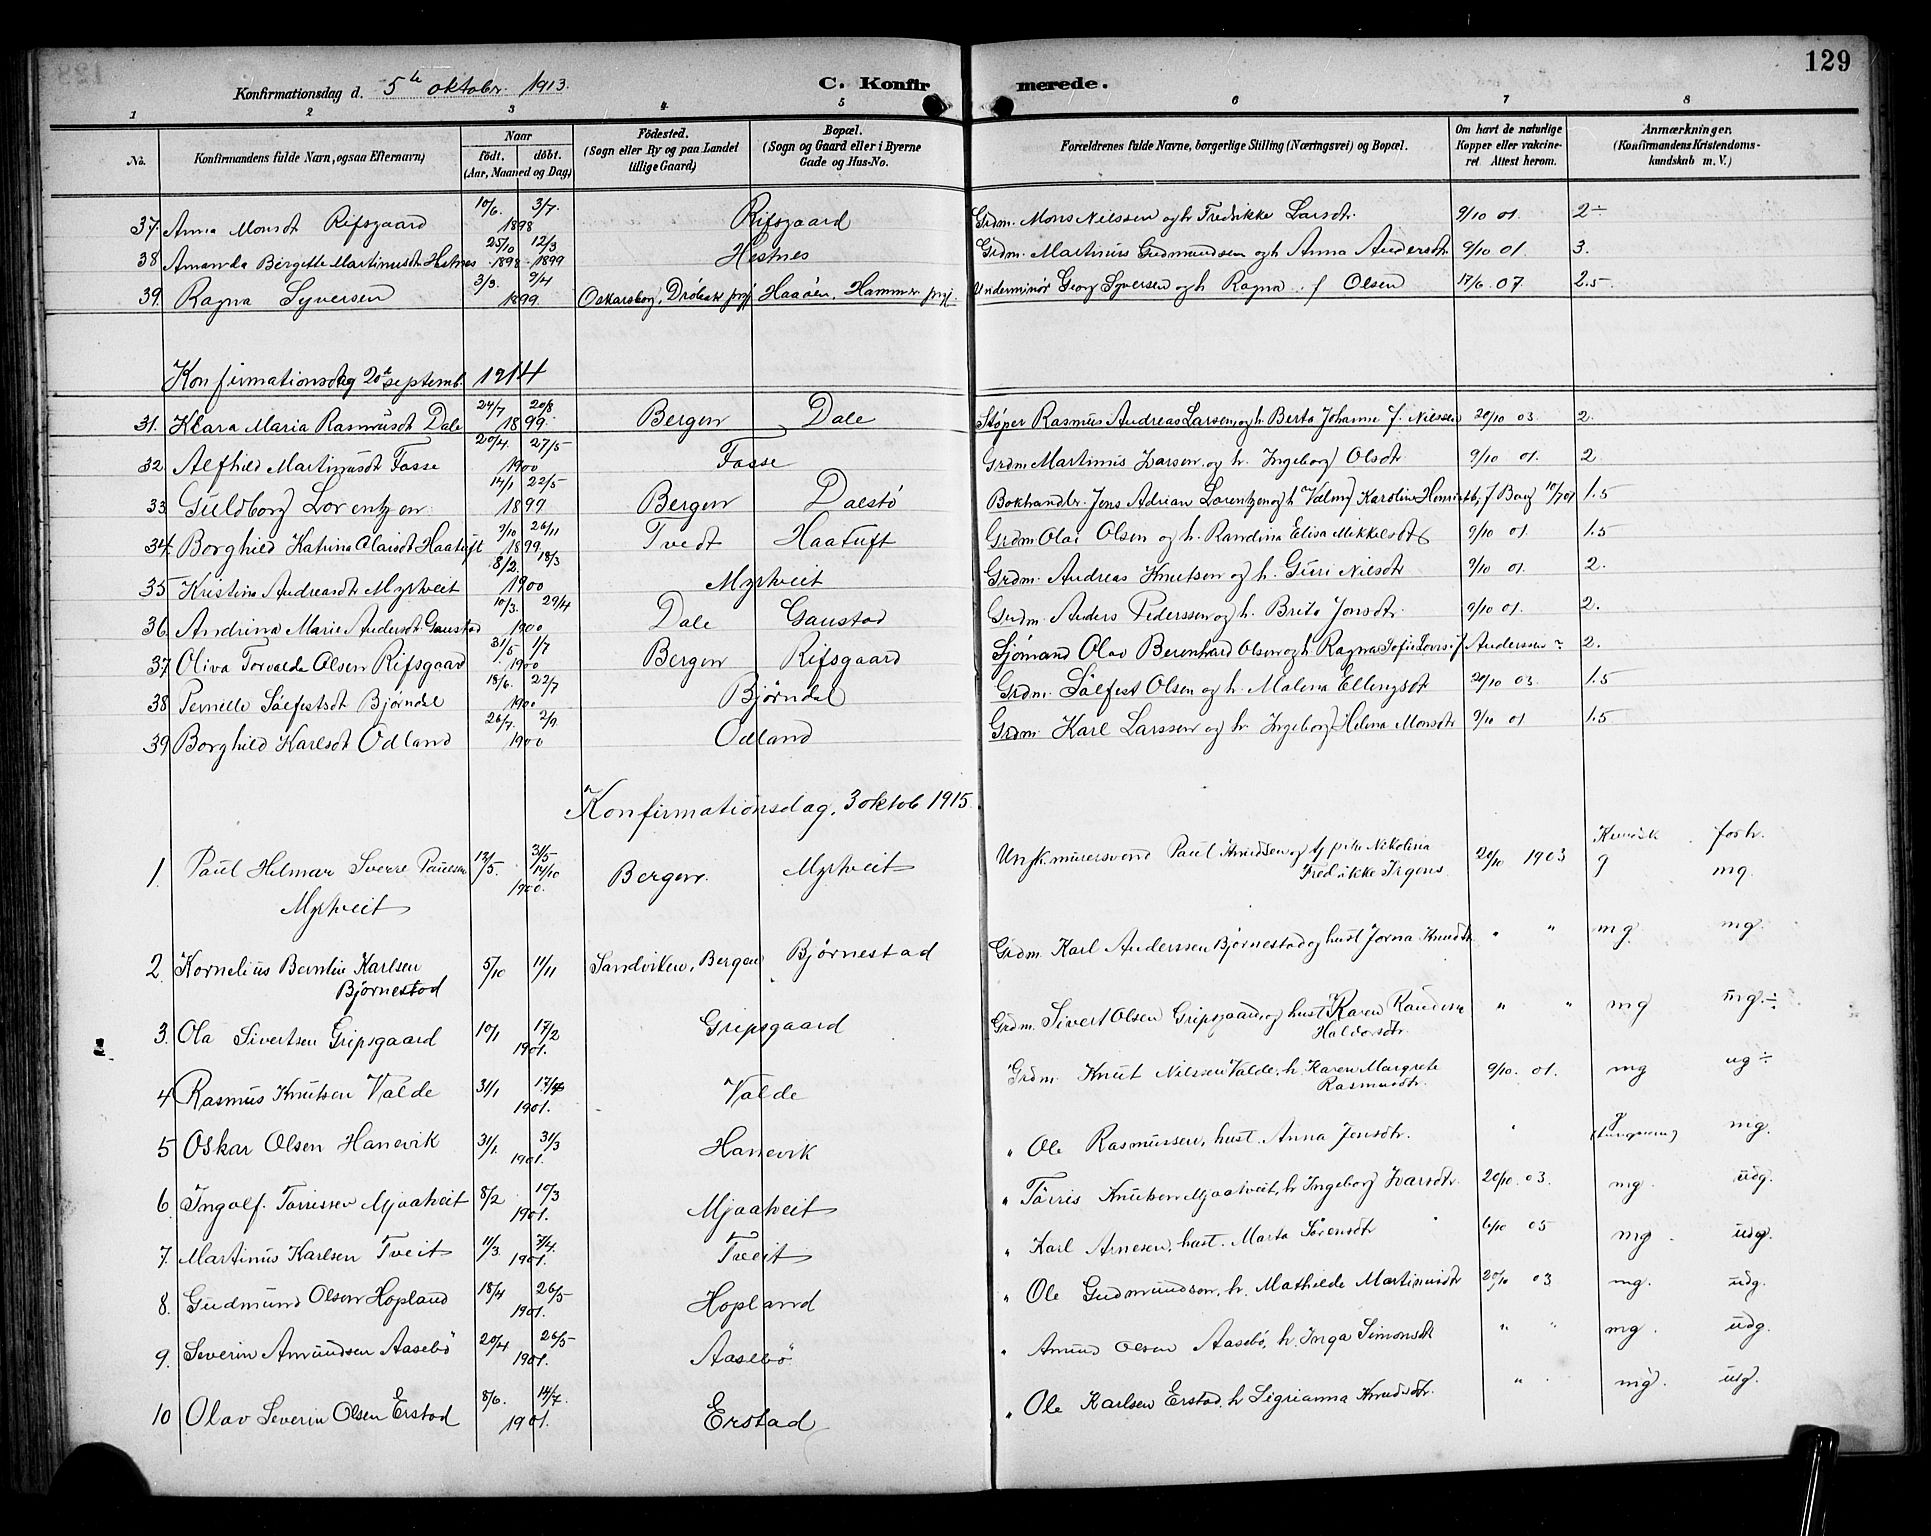 129
Konfirmationsdag d. 5te oktobr. 1913.
C. Konfirmerede.
1 2 3 4 5 6 7 8
No. Konfirmandens fulde Navn, ogsaa Efternavn) Naar födt, döbt. (Aar, Maaned og Dag) Födested. (Sogn eller By og paa Landet tillige Gaard) Bopæl. (Sogn og Gaard eller i Byerne Gade og Hus-No. Forældrenes fulde Navne, borgerlige Stilling (Næringsvei) og Bopæl. Om havt de naturlige Kopper eller vakcineret. Attest herom. Anmærkninger. (Konfirmandens Kristendomskundskab m. V.)
37. Anna Monsdt Rifsgaard 10/6. 3/7. 1898 Rifsgaard Grdm. Mons Nilssen og h Fredrikke Larsdt. 9/10 01. 2÷
38 Amanda Bergitte Martinusdt Hestnes 25/10 1898 12/3 1899 Hestnes Grdm. Martinus Gudmundsen og h Anna Andersdt 9/10 01 3.
39. Ragna Syversen 3/3. 9/4 1899 Oskarsborg, Dröbak prgj Haaöen, Hammer prgj. Underminör Georg Syversen og h Ragna f Olsen 17/6. 07. 2.5
Konfirmationsdag 20de septemb. 1914
31. Klara Maria Rasmusdt Dale 24/7 20/8 1899 Bergen Dale Støper Rasmus Andreas Larsen og h. Berta Johanne f. Nilssen 20/10 03. 2.
32 Alfhild Martinusdt Fosse 20/4 27/5 1900 Fosse Grdm Martinus Larsen og h. Ingeborg Olsdt 9/10 01. 2
33 Guldborg Lorentzen 14/1 22/5 1899 Bergen Dalstö Bokhandler Jens Adrian Lorentzen og h Valborg Karoline f Berg 10/7 01 1.5
34. Borghild Katrina Olaisdt Haatuft 9/10 26/11 1899 Tvedt Haatuft Grdm Olai Olsen og h. Randina Elisa Mikkelsdt 9/10 01. 1.5
35 Kristina Andreasdt Myrtveit 8/2. 18/3 1900 Myrtveit Grdm. Andreas Knutsen og h. Guri Nilsdt 9/10 01. 2.
36 Andrina Marie Andersdt Gaustad 10/3. 29/4 1900 Dale Gaustad Grdm. Anders Pederssen og h. Brita Jonsdt. 9/10 01. 2.
37 Oliva Torvalda Olsen Rifsgaard 31/5 1/7 1900 Bergen Rifsgaard Sjömand Olav Berenhard Olsen og h Ragna Sofie f Anderssen 2.
38 Pernille Sålfestsdt Bjørndal 18/6. 22/7 1900 Bjørndal Grdm. Sålfest Olsen og h. Malena Ellingsdt 20/10 03. 1.5
39 Borghild Karlsdt Odland 26/7. 2/9. 1900 Odland Grdm. Karl Larssen og h. Ingeborg Helena Monsdt 9/10 01 1.5
Konfirmationsdag, 3 oktob 1915.
forh.
1. Paul Helmar Sverre Paulsen 12/5. 31/5 14/10 1900. Bergen. Myrtveit Ungk. murersvend Paul Knudsen og Nikolina 20/10 1903 g mg.
Myrtveit Fredrikke Irgens
2 Kornelius Berntin Karlsen 5/10 11/11 Sandviken, Bergen Bjørnestad Grdm. Karl Anderssen Bjørnestad og hust Jorna Knudsdt " " mg. mg.
Bjørnestad
3. Ola Sivertsen Gripsgaard 10/1 17/2 1901. Gripsgaard Grdm. Sivert Olsen Gripsgaard og hust Karen " " mg mg.÷
Haldorsdt.
4 Rasmus Knutsen Valde 31/1 17/4 1901. Valde Grdm. Knut Nilssen Valde, h. Karen Margrete 9/10. 01. mg ug÷
Rasmusdt.
5 Oskar Olsen Hanevik 31/1. 31/3 1901. Hanevik " Ole Rasmussen, hust. Anna Jensdtr. " mg.
6. Ingolf. Tørrissen Mjaatveit 8/2 10/3 1901. Mjaatveit " Tørris Knutsen Mjaatveit, h Ingeborg Ivarsdtr 20/10. 03. mg. udg.
7. Martinus Karlsen Tveit 11/3. 7/4. 1901. Tveit " Karl Arnesen, hust. Marta Sørensdtr " 6/10 05 mg. udg.
8. Gudmund Olsen Hopland 18/4 26/5 1901. Hopland " Ole Gudmundson, h. Mathilde Martinusdtr 20/10 03 mg. udg.
9. Severin Amundsen Aasebö 20/4 26/5 1901. Aasebö " Amund Olsen Aasebö, h. Inga Simonsdt " " mg. udg.
10 Olav Severin Olsen Erstad 8/6. 14/7. 1901. Erstad " Ole Karlsen Erstad, h Sigrianna Knudsdtr. " mg. udg.